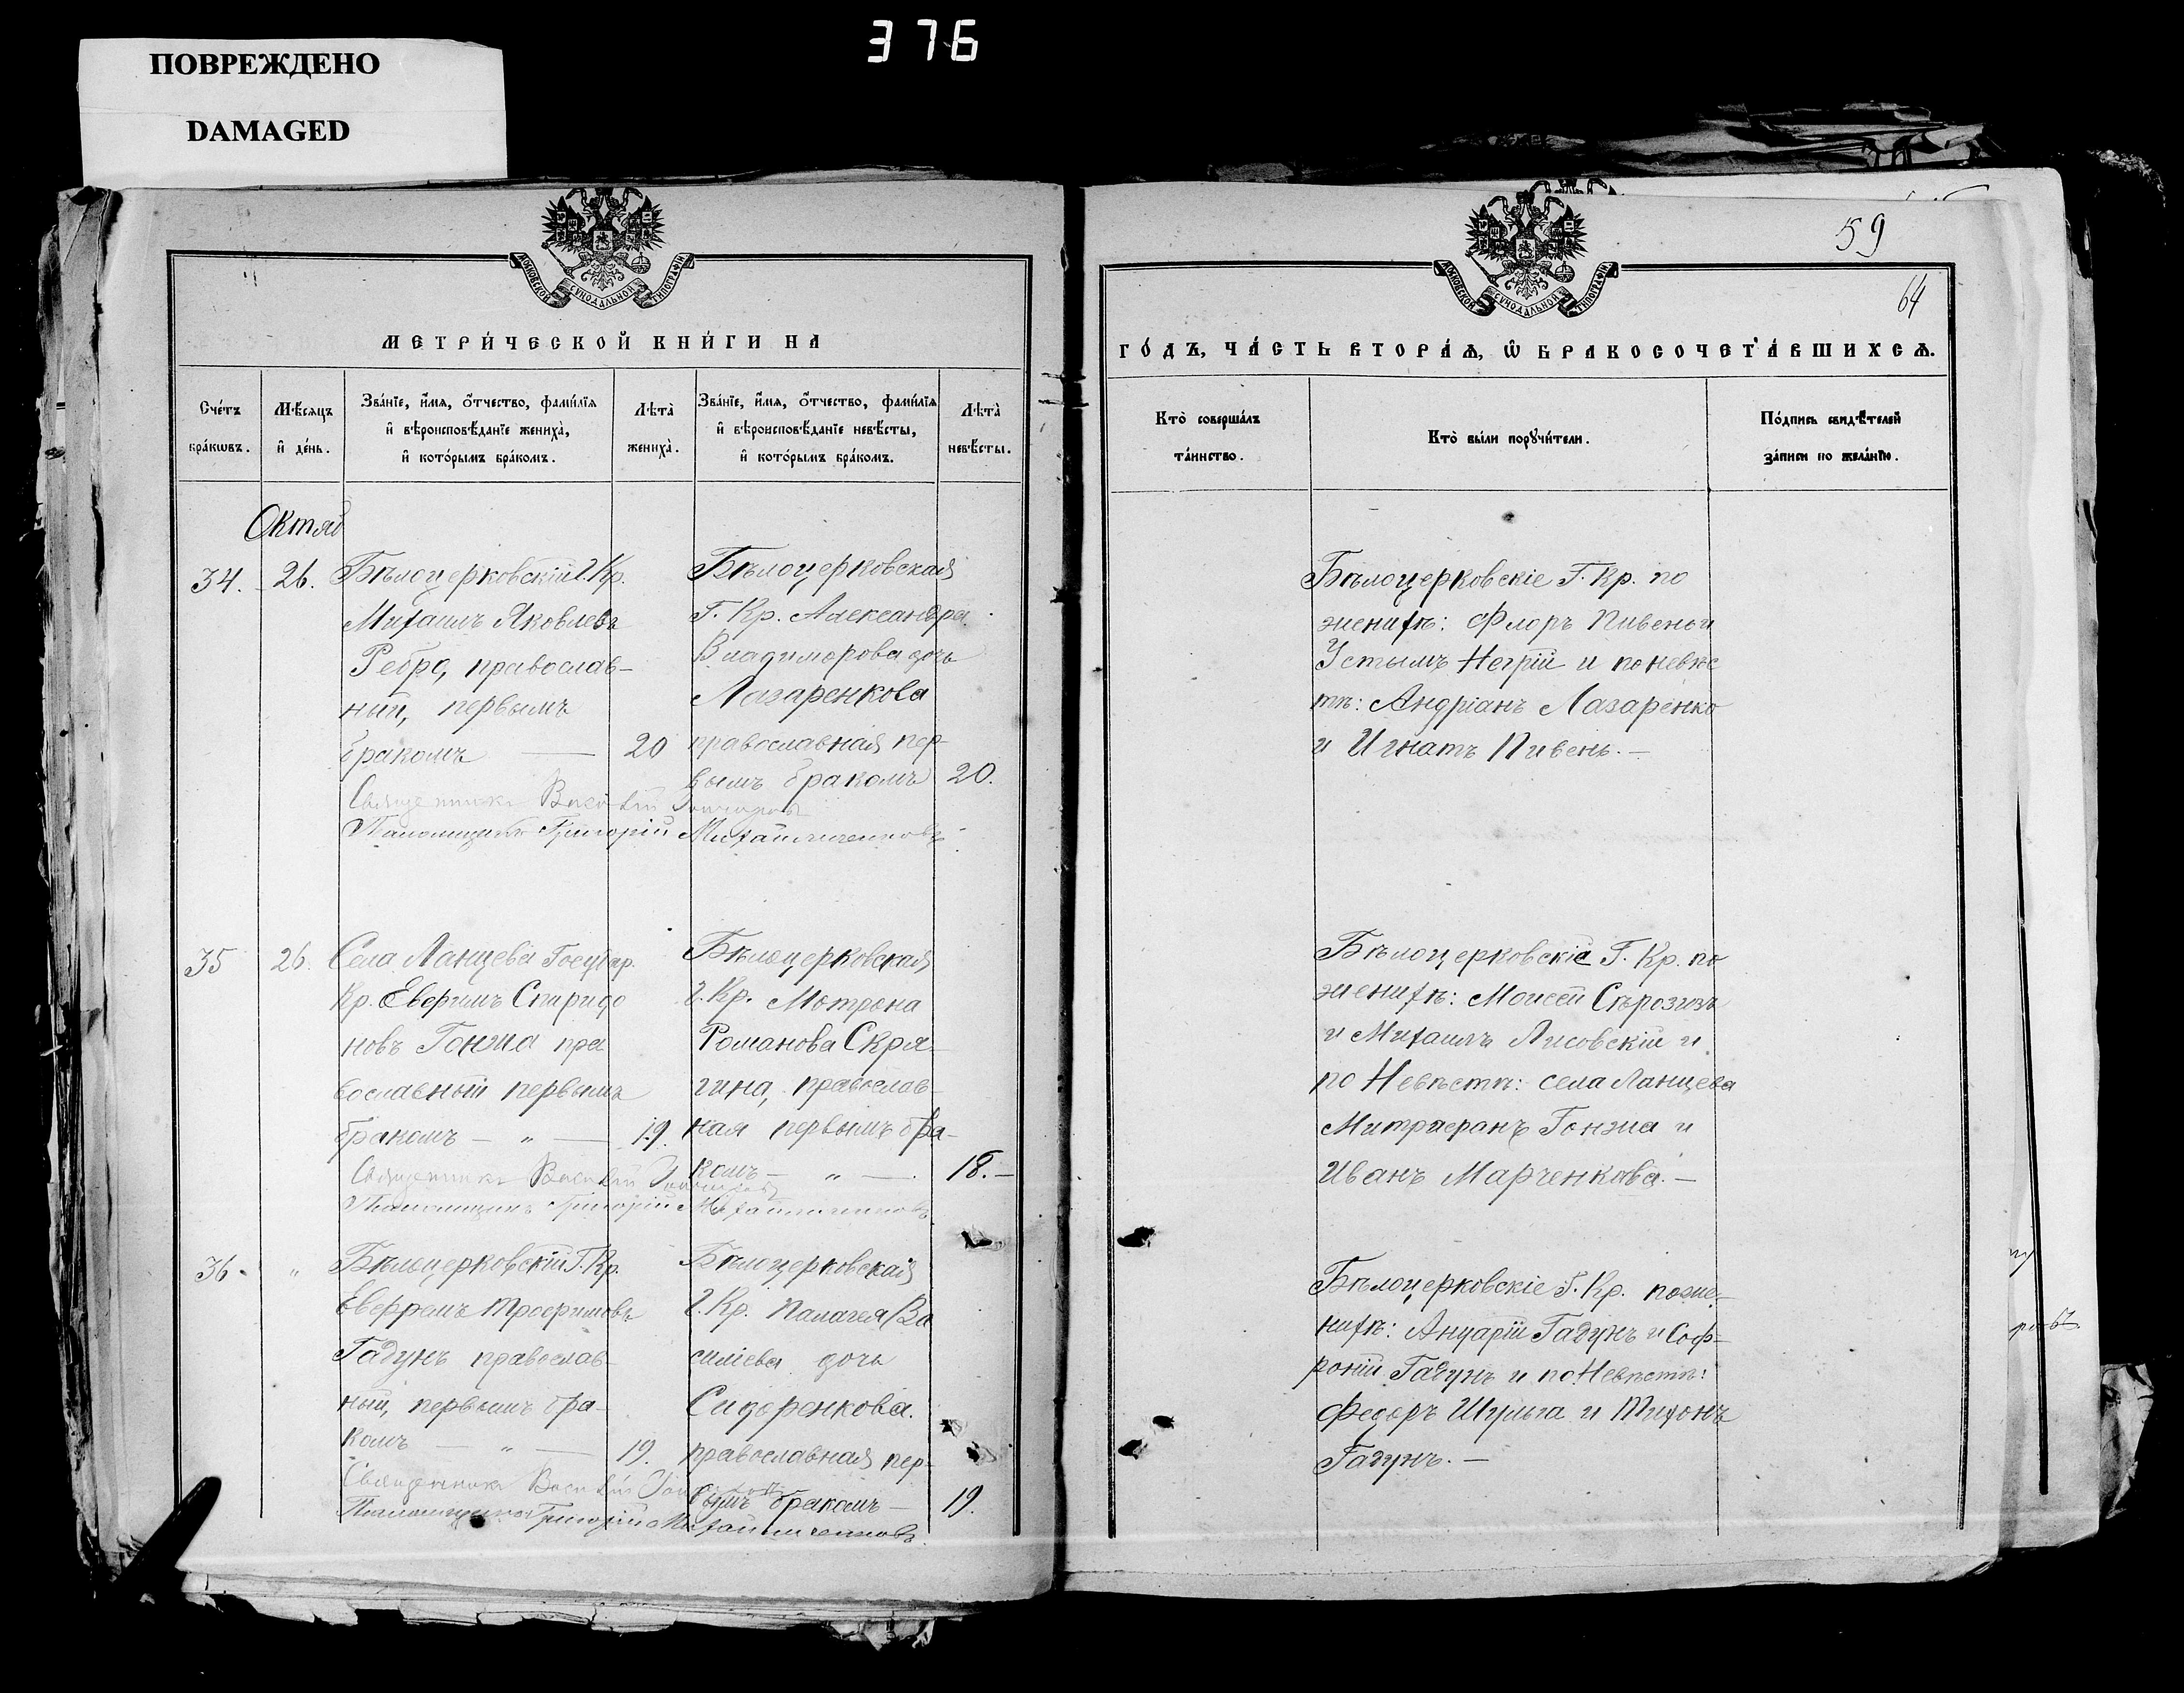 376
ПОВРЕЖДЕНО
DAMAGED
МОСКОВСКОЙ СѴНОДАЛЬНОЙ ТИПОГРАФІИ
МЕТРИ́ЧЕСКОЙ КНИ́ГИ НА
Сче́тъ бра́кѡвъ.
Мѣ́сяцъ и҆ де́нь.
Зва́нїе, и҆́мѧ, ѻ҆́тчество, фами́лїѧ
и҆ вѣроисповѣ́данїе жениха̀,
и҆ кото́рымъ бра́комъ.
Лѣта̀ жениха̀.
Зва́нїе, и҆́мѧ, ѻ҆́тчество, фами́лїѧ
и҆ вѣроисповѣ́данїе невѣ́сты,
и҆ кото́рымъ бра́комъ.
Лѣта̀ невѣ́сты.
Октяб
34. 26.
Бѣлоцерковскій Г. Кр.
Михаилъ Яковлевъ
Ребро, православ-
ный, первымъ
бракомъ — 20
Бѣлоцерковская
Г. Кр. Александра
Владимірова дочь
Лазаренкова
православная пер-
вымъ бракомъ 20.
Священникъ Василій
Григорій Михайличенковъ
35 26.
Села Ланцева Государ.
Кр. Евфимъ Спиридо
новъ Гонжа пра
вославный первымъ
бракомъ — " — 19.
Бѣлоцерковская
Г. Кр. Мотрона
Романова Скря-
гина, православ
ная первымъ бра-
комъ — " — 18. —
Священникъ Василій
Григорій Михайличенковъ
36. "
Бѣлоцерковскій Г. Кр.
Евфремъ Трофимовъ
Гадунъ православ-
ный, первымъ бра-
комъ — " — 19.
Бѣлоцерковская
Г. Кр. Палагея Ва
силіева дочь
Сидоренкова.
православная пер-
вымъ бракомъ — 19.
Священникъ Василій
Григорій Михайличенковъ
59
64
МОСКОВСКОЙ СѴНОДАЛЬНОЙ ТИПОГРАФІИ
ГО́ДЪ, ЧА́СТЬ ВТОРА́Ѧ, Ѡ҆ БРАКОСОЧЕТА́ВШИХСѦ.
Кто̀ соверша́лъ
та́инство.
Кто̀ бы́ли порꙋчи́тели.
По́дпись свидѣ́телей
за́писи по жела́нїю.
Бѣлоцерковскіе Г. Кр. по
женихѣ: Флоръ Пивень и
Устымъ Негрій и по невѣс
тѣ: Андріанъ Лазаренко
и Игнатъ Пивень. —
Бѣлоцерковскіе Г. Кр. по
женихѣ: Моисей
и Михаилъ Лисовскій и
по Невѣстѣ: села Ланцева
Митрофанъ Гонжа и
Иванъ Марченкова. —
Бѣлоцерковскіе Г. Кр. по же-
нихѣ: Гадунъ и Соф-
роній Гадунъ и по Невѣстѣ:
Федоръ Шульга и Тихонъ
Гадунъ. —